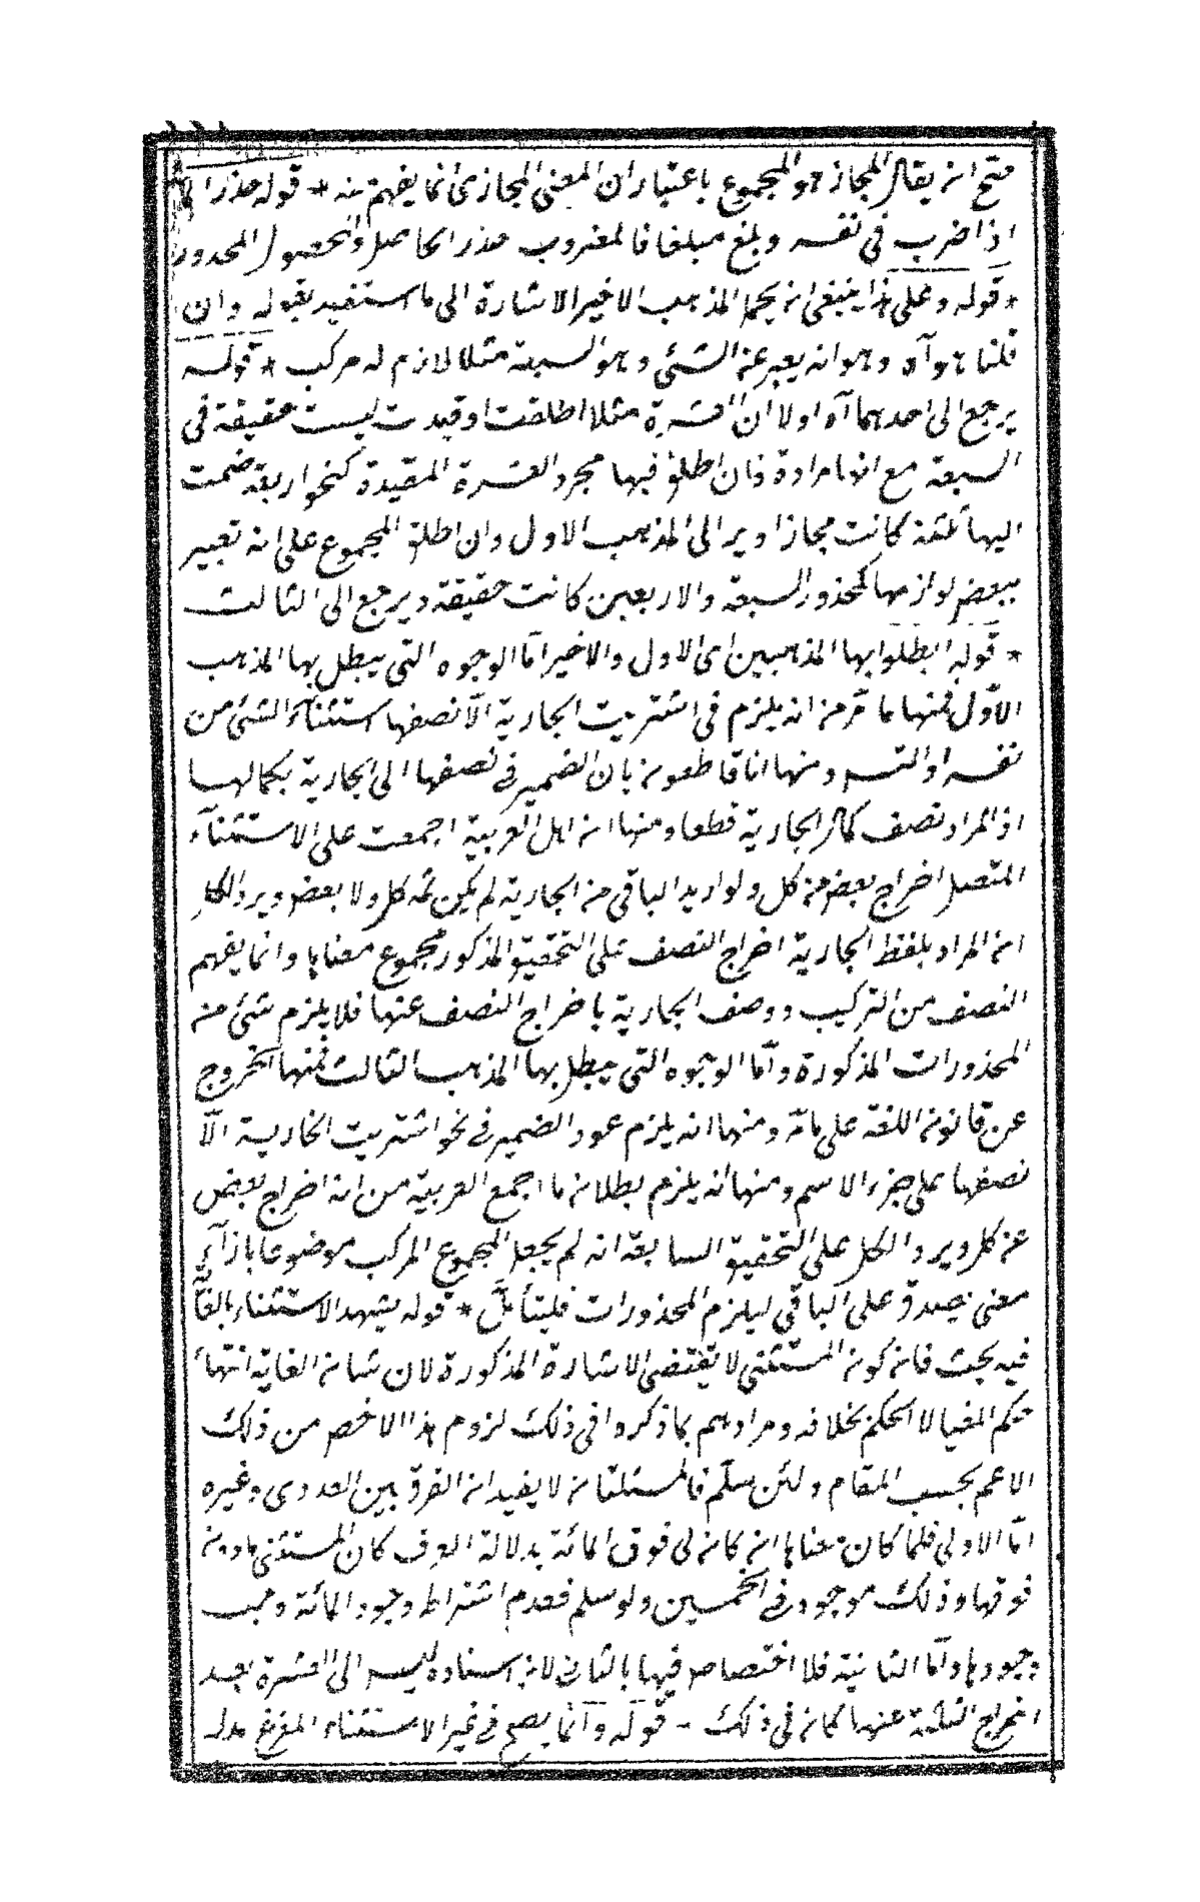 فتح انه يقال المجاز هو المجموع باعتبار ان المعنى المجازى انما يفهم منه * قوله جذر
اذا ضرب فى نفسه وبلغ مبلغا فالمضروب جذر الحاصل والحصول المجذور
* قوله وعلى هذا ينبغى ان يحمل المذهب الاخير الاشارة الى ما استفيد بقوله وان
قلنا هو آه وهو انه يعبر عن الشئ وهو السبعة مثلا لازم له مركب * قوله
يرجع الى احدهما آه اولا ان العشرة مثلا اطلقت او قيدت ليست حقيقة فى
السبعة مع انها مرادة فان اطلق فيها مجرد العشرة المقيدة كنحو اربعة ضمت
اليها ثلثة كانت مجازا ويرد الى المذهب الاول وان اطلق المجموع على انه تعبير
ببعض لوازمها كمجذور السبعة والاربعين كانت حقيقة ويرجع الى الثالث
* قوله ابطلوا بها المذهبين اى الاول والاخير اما الوجوه التى يبطل بها المذهب
الاول فمنها ما مر من انه يلزم فى اشتريت الجارية الا نصفها استثناء الشئ من
نفسه او التسـ ومنها انا قاطعون بان الضمير فى نصفها الى الجارية بكمالها
اذ المراد نصف كمال الجارية قطعا ومنها ان اهل العربية اجمعت على الاستثناء
المتصل اخراج بعض من كل ولو اريد الباقى من الجارية لم يكن ثمه كل ولا بعض ويرد الكل
ان المراد بلفظ الجارية اخراج النصف على التحقيق المذكور مجموع معناها وانما يفهم
النصف من التركيب ووصف الجارية باخراج النصف عنها فلا يلزم شئ من
المحذورات المذكورة واما الوجوه التى يبطل بها المذهب الثالث فمنها الخروج
عن قانون اللغة على ما مر ومنها انه يلزم عود الضمير فى نحو اشتريت الجارية الا
نصفها على جزء الاسم ومنها انه يلزم بطلان ما اجمع العربية من انه اخراج بعض
عن كل ويرد الكل على التحقيق السابق انه لم يجعل المجموع المركب موضوعا بازاء
معنى يصدق على الباقى ليلزم المحذورات فليتأمل * قوله يشهد الاستثناء بالغا
فيه بحث فان كون المستثنى لا يقتضى الاشارة المذكورة لان شان الغاية انتهاء
حكم المغيا لا الحكم بخلافه ومرادهم بما ذكروا فى ذلك لزوم هذا الاخص من ذلك
الاعم بحسب المقام ولئن سلم فالمسئلتان لا يفيد ان الفرق بين العددى وغيره
اما الاولى فلما كان معناها ان كان لى فوق المائة بدلالة العرف كان المستثنى ما دون
فوقها وذلك موجود فى الخمسين ولو سلم فعدم اشتراط وجود المائة وجب
وجودها واما الثانية فلا اختصاص فيها بالثانى لان اسناده ليس الى العشرة بعد
اخراج الثلثة عنها كما ان فى ذلك - قوله وانما يصح فى غير الاستثناء المفرغ